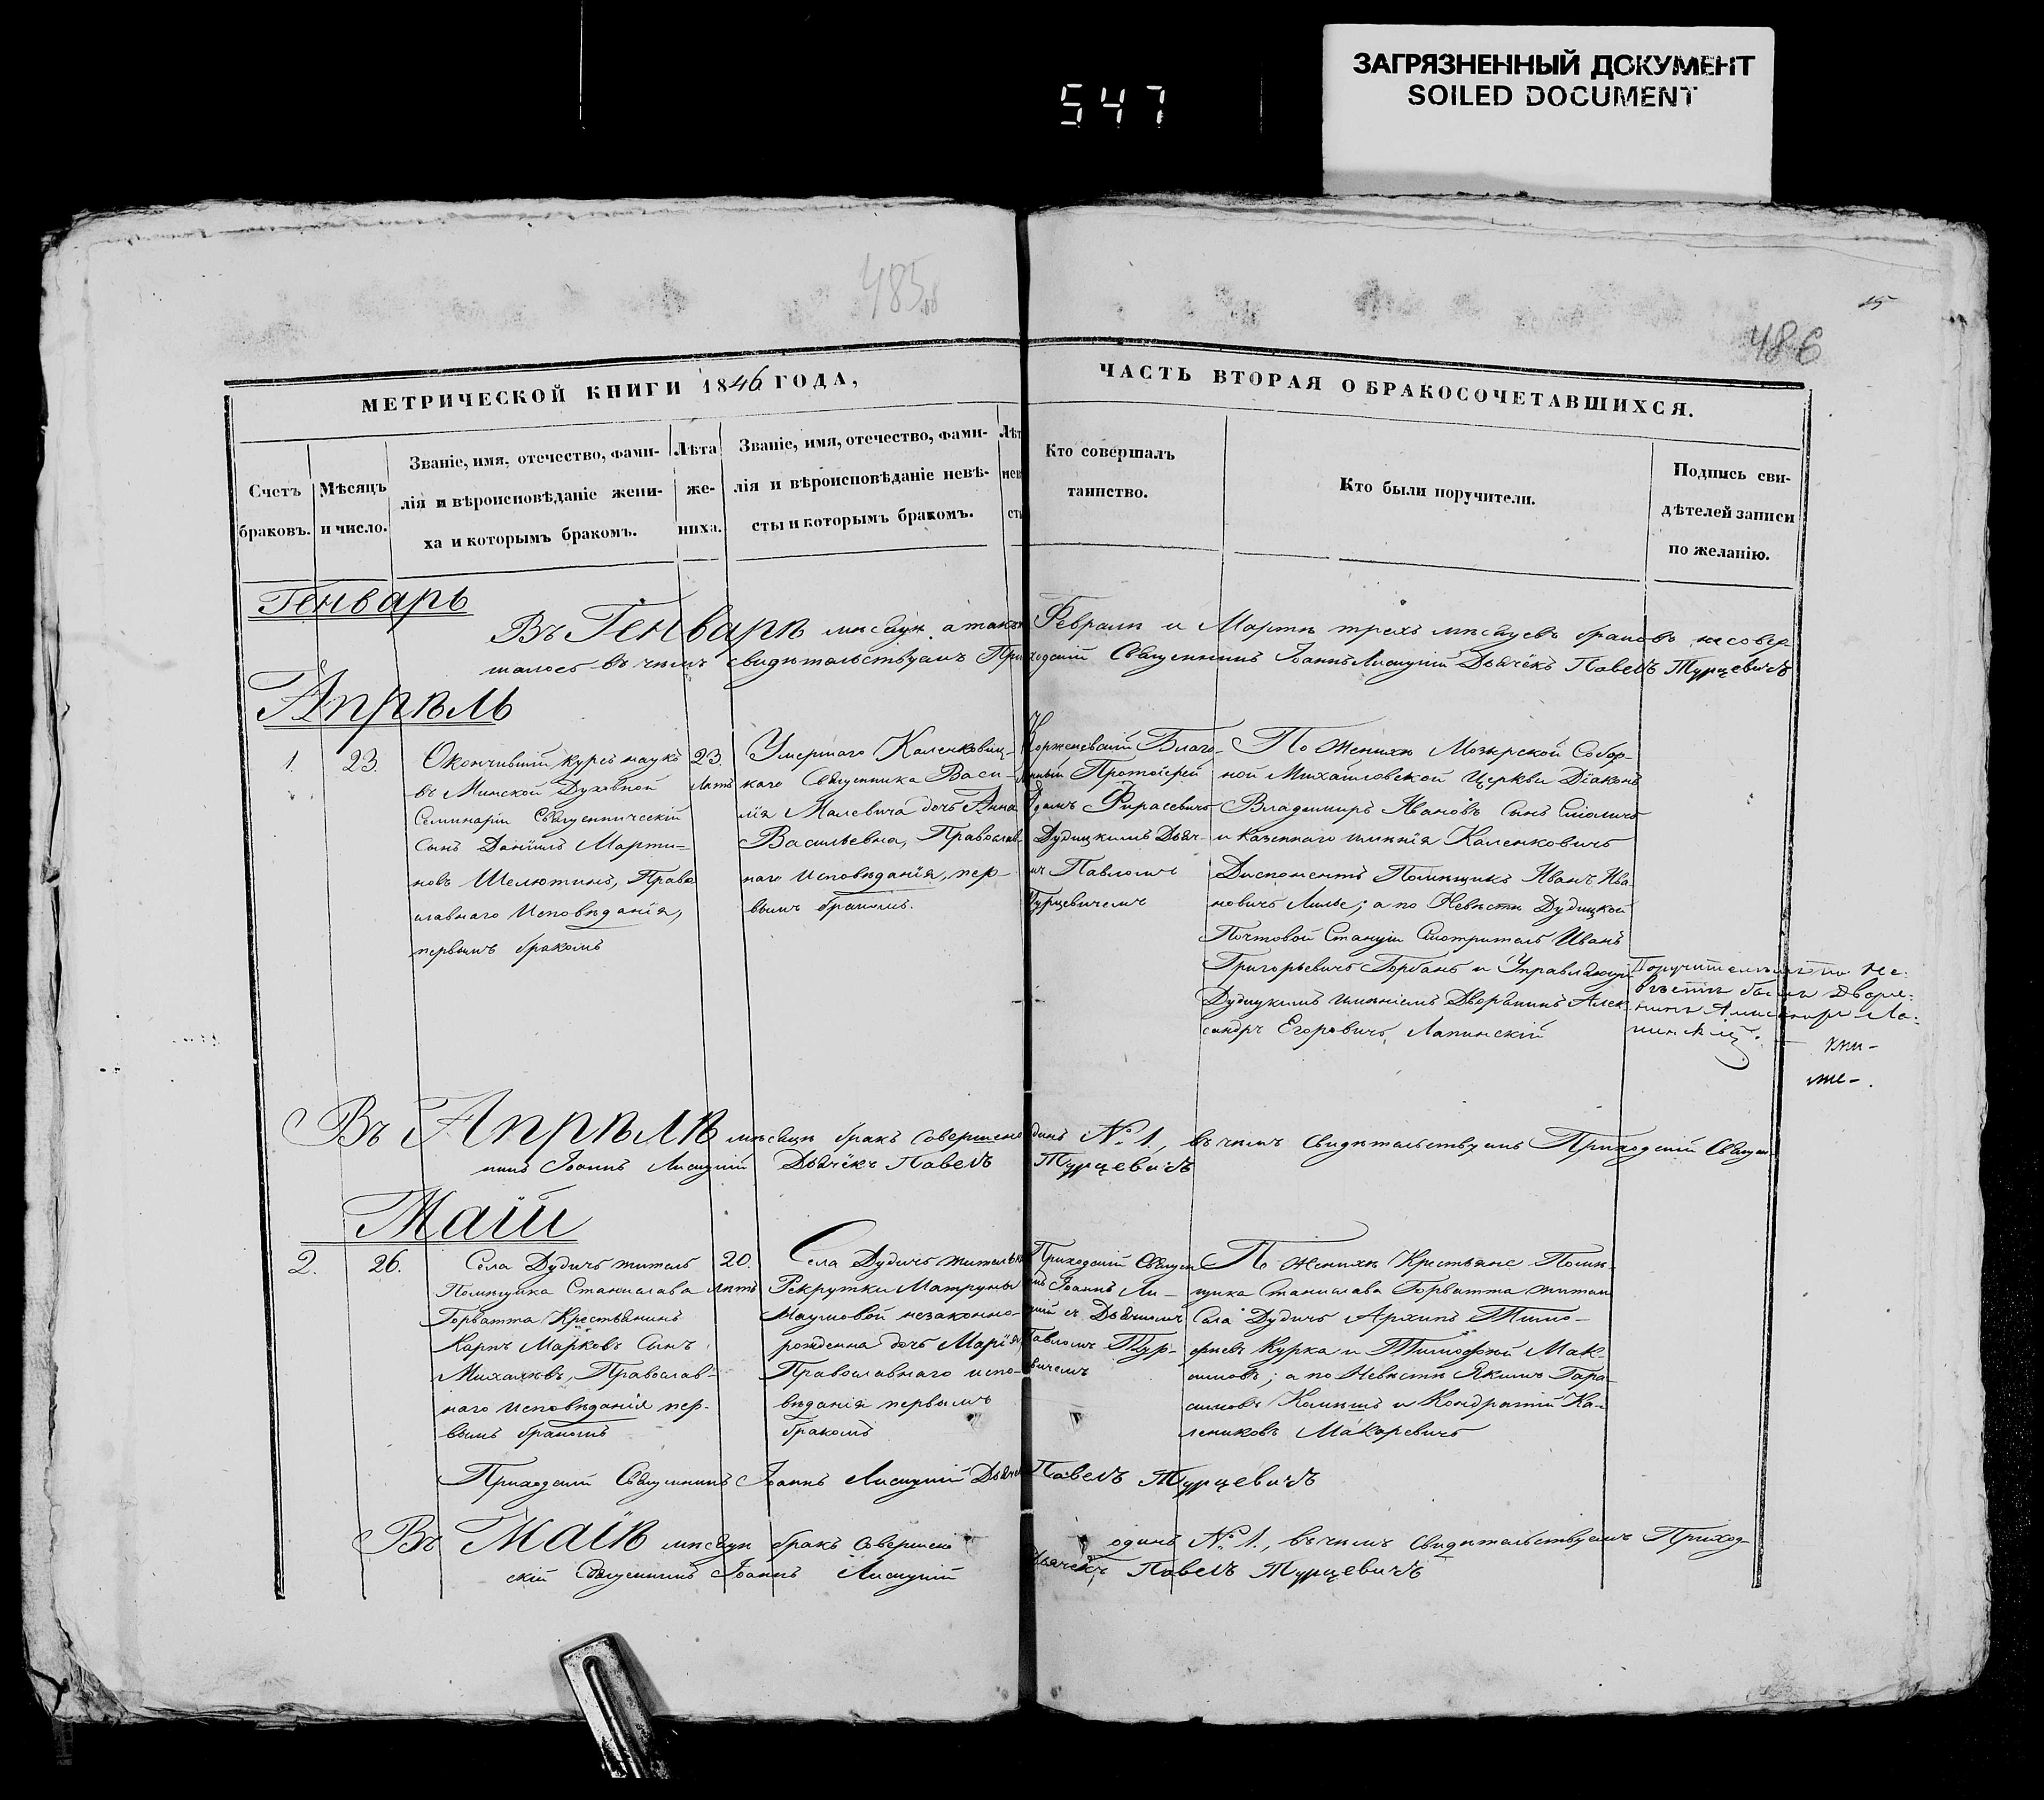 ЗАГРЯЗНЕННЫЙ ДОКУМЕНТ
SOILED DOCUMENT
547
485
15
486
МЕТРИЧЕСКОЙ КНИГИ 1846 ГОДА,
Счетъ браковъ.
Мѣсяцъ и число.
Званіе, имя, отечество, фами-
лія и вѣроисповѣданіе жени-
ха и которымъ бракомъ.
Лѣта
же-
ниха.
Званіе, имя, отечество, фами-
лія и вѣроисповѣданіе невѣ-
сты и которымъ бракомъ.
Лѣт
нев
ст
ЧАСТЬ ВТОРАЯ О БРАКОСОЧЕТАВШИХСЯ.
Кто совершалъ
таинство.
Кто были поручители.
Подпись сви-
дѣтелей записи
по желанію.
Генварь
Въ Генварѣ мѣсяцѣ, а такъ Февралѣ и Мартѣ трехъ мѣсяцевъ браковъ несовер-
шалось въ чемъ свидѣтельствуемъ Приходскій Священникъ Іоаннъ Лисицкій Дьячёкъ Павелъ Турцевичъ
Апрѣль
1.
23.
Окончившій курсъ наукъ
въ Минской Духовной
Семинаріи Священническій
Сынъ Даніилъ Марти-
новъ Шелютинъ, Право
славнаго Исповѣданія,
первымъ бракомъ
23.
лѣтъ
Умершаго Каленковиц-
каго Священника Васи-
лія Малевича дочь Анна
Васильевна, Православ
наго Исповѣданія, пер-
вымъ бракомъ.
Корженевскій Благо-
чинный Протоіерей
Адамъ Фирасевичъ
Дудицкимъ Дьяч-
Павломъ
Турцевичемъ
По Женихѣ Мозырской Собор-
ной Михайловской Церкви Діаконъ
Владимиръ Ивановъ Сынъ Смоличъ
и Казеннаго имѣнія Каленковичъ
Диспонентъ Помѣщикъ Иванъ Ива
новичъ Лилье; а по Невѣстѣ Дудицкой
Почтовой Станціи Смотритель Иванъ
Григорьевичъ Горбань и Управляющій
Дудицкимъ имѣніемъ Дворянинъ Алек
сандръ Егоровичъ Лапинскій
Поручителемъ по Не-
вѣстѣ былъ Дворя-
нинъ Александръ Ла-
пинскій.
Въ Апрѣлѣ мѣсяцѣ бракъ Совершенъ одинъ № 1, въ чемъ Свидѣтельствуемъ Приходскій Священ
никъ Іоаннъ Лисицкій Дьячёкъ Павелъ Турцевичъ
Маій
2.
26.
Села Дудичъ житель
Помѣщика Станислава
Горватта Крестьянинъ
Карпъ Марковъ Сынъ
Михалевъ, Православ-
наго Исповѣданія пер-
вымъ бракомъ
20.
лѣтъ
Села Дудичъ житель
Рекрутки Матруны
Наумовой незаконно-
рожденна дочь Марія
Православнаго испо-
вѣданія первымъ
бракомъ
Приходскій Священ
Іоаннъ Ли-
цкій съ Дьячкомъ
Павломъ Тур-
вичемъ
По Женихѣ Крестьяне Помѣ-
щика Станислава Горватта жители
Села Дудичъ Архипъ Тимо-
феевъ Курка и Тимофѣй Мак-
симовъ; а по Невѣстѣ Якимъ Гара-
симовъ Камышъ и Кондратій Ка-
лениковъ Макаревичъ
Приходскій Священникъ Іоаннъ Лисицкій Дьячёкъ Павелъ Турцевичъ
Въ Маіѣ мѣсяцѣ бракъ Совершенъ одинъ № 1., въ чемъ Свидѣтельствуемъ Приход-
скій Священникъ Іоаннъ Лисицкій Дьячёкъ Павелъ Турцевичъ